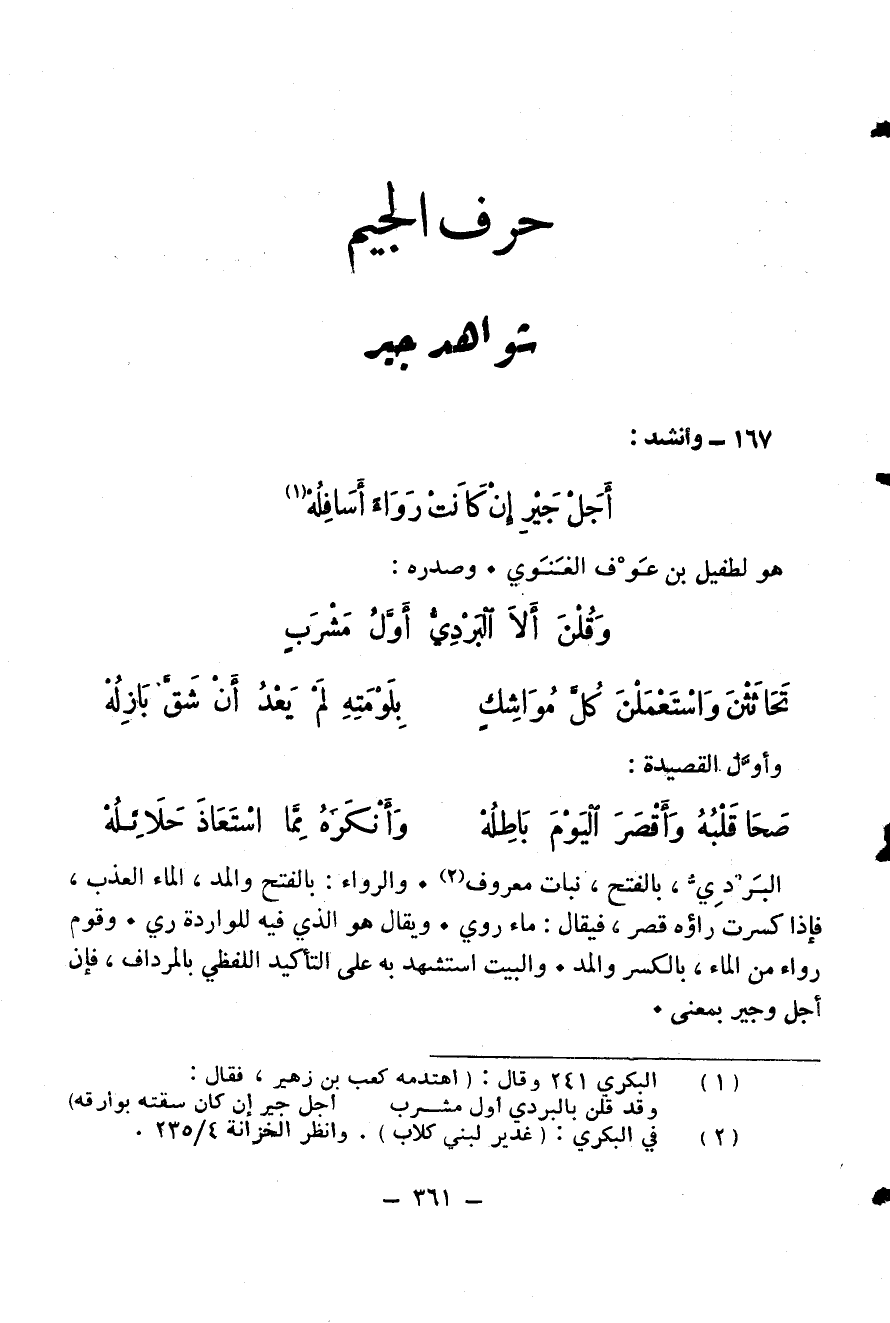 حرف الجيم
شواهد جير
١٦٧ ــ وأنشد :
أَجَلْ جَيْرِ إِنْ كَانَتْ رَوَاءً أَسَافِلُهْ(١)
هو لطفيل بن عَوْف الغَنَوي ٠ وصدره :
وَقُلْنَ أَلاَ ٱلْبَرْدِيُّ أَوَّلُ مَشْرَبٍ
تَحَاثَثْنَ وَاسْتَعْمَلْنَ كُلَّ مُوَاشِكٍ بِلَوْمَتِهِ لَمْ يَعْدُ أَنْ شَقَّ بَازِلُهْ
وأوَّل القصيدة :
صَحَا قَلْبُهُ وَأَقْصَرَ ٱلْيَوْمَ بَاطِلُهْ وَأَنْكَرَهُ مِمَّا اسْتَعَاذَ حَلَائِلُهْ
البَرْدِيُّ ، بالفتح ، نبات معروف(٢) ٠ والرواء : بالفتح والمد ، الماء العذب ،
فإذا كسرت راؤه قصر ، فيقال : ماء روي ٠ ويقال هو الذي فيه للواردة ري ٠ وقوم
رواء من الماء ، بالكسر والمد ٠ والبيت استشهد به على التأكيد اللفظي بالمرداف ، فإن
أجل وجير بمعنى ٠
(١) البكري ٢٤١ وقال : ( اهتدمه كعب بن زهير ، فقال :
وقد قلن بالبردي أول مشرب أجل جير إن كان سقته بوارقه)
(٢) في البكري : ( غدير لبني كلاب ) . وانظر الخزانة ٢٣٥/٤ .
ــ ٣٦١ ــ